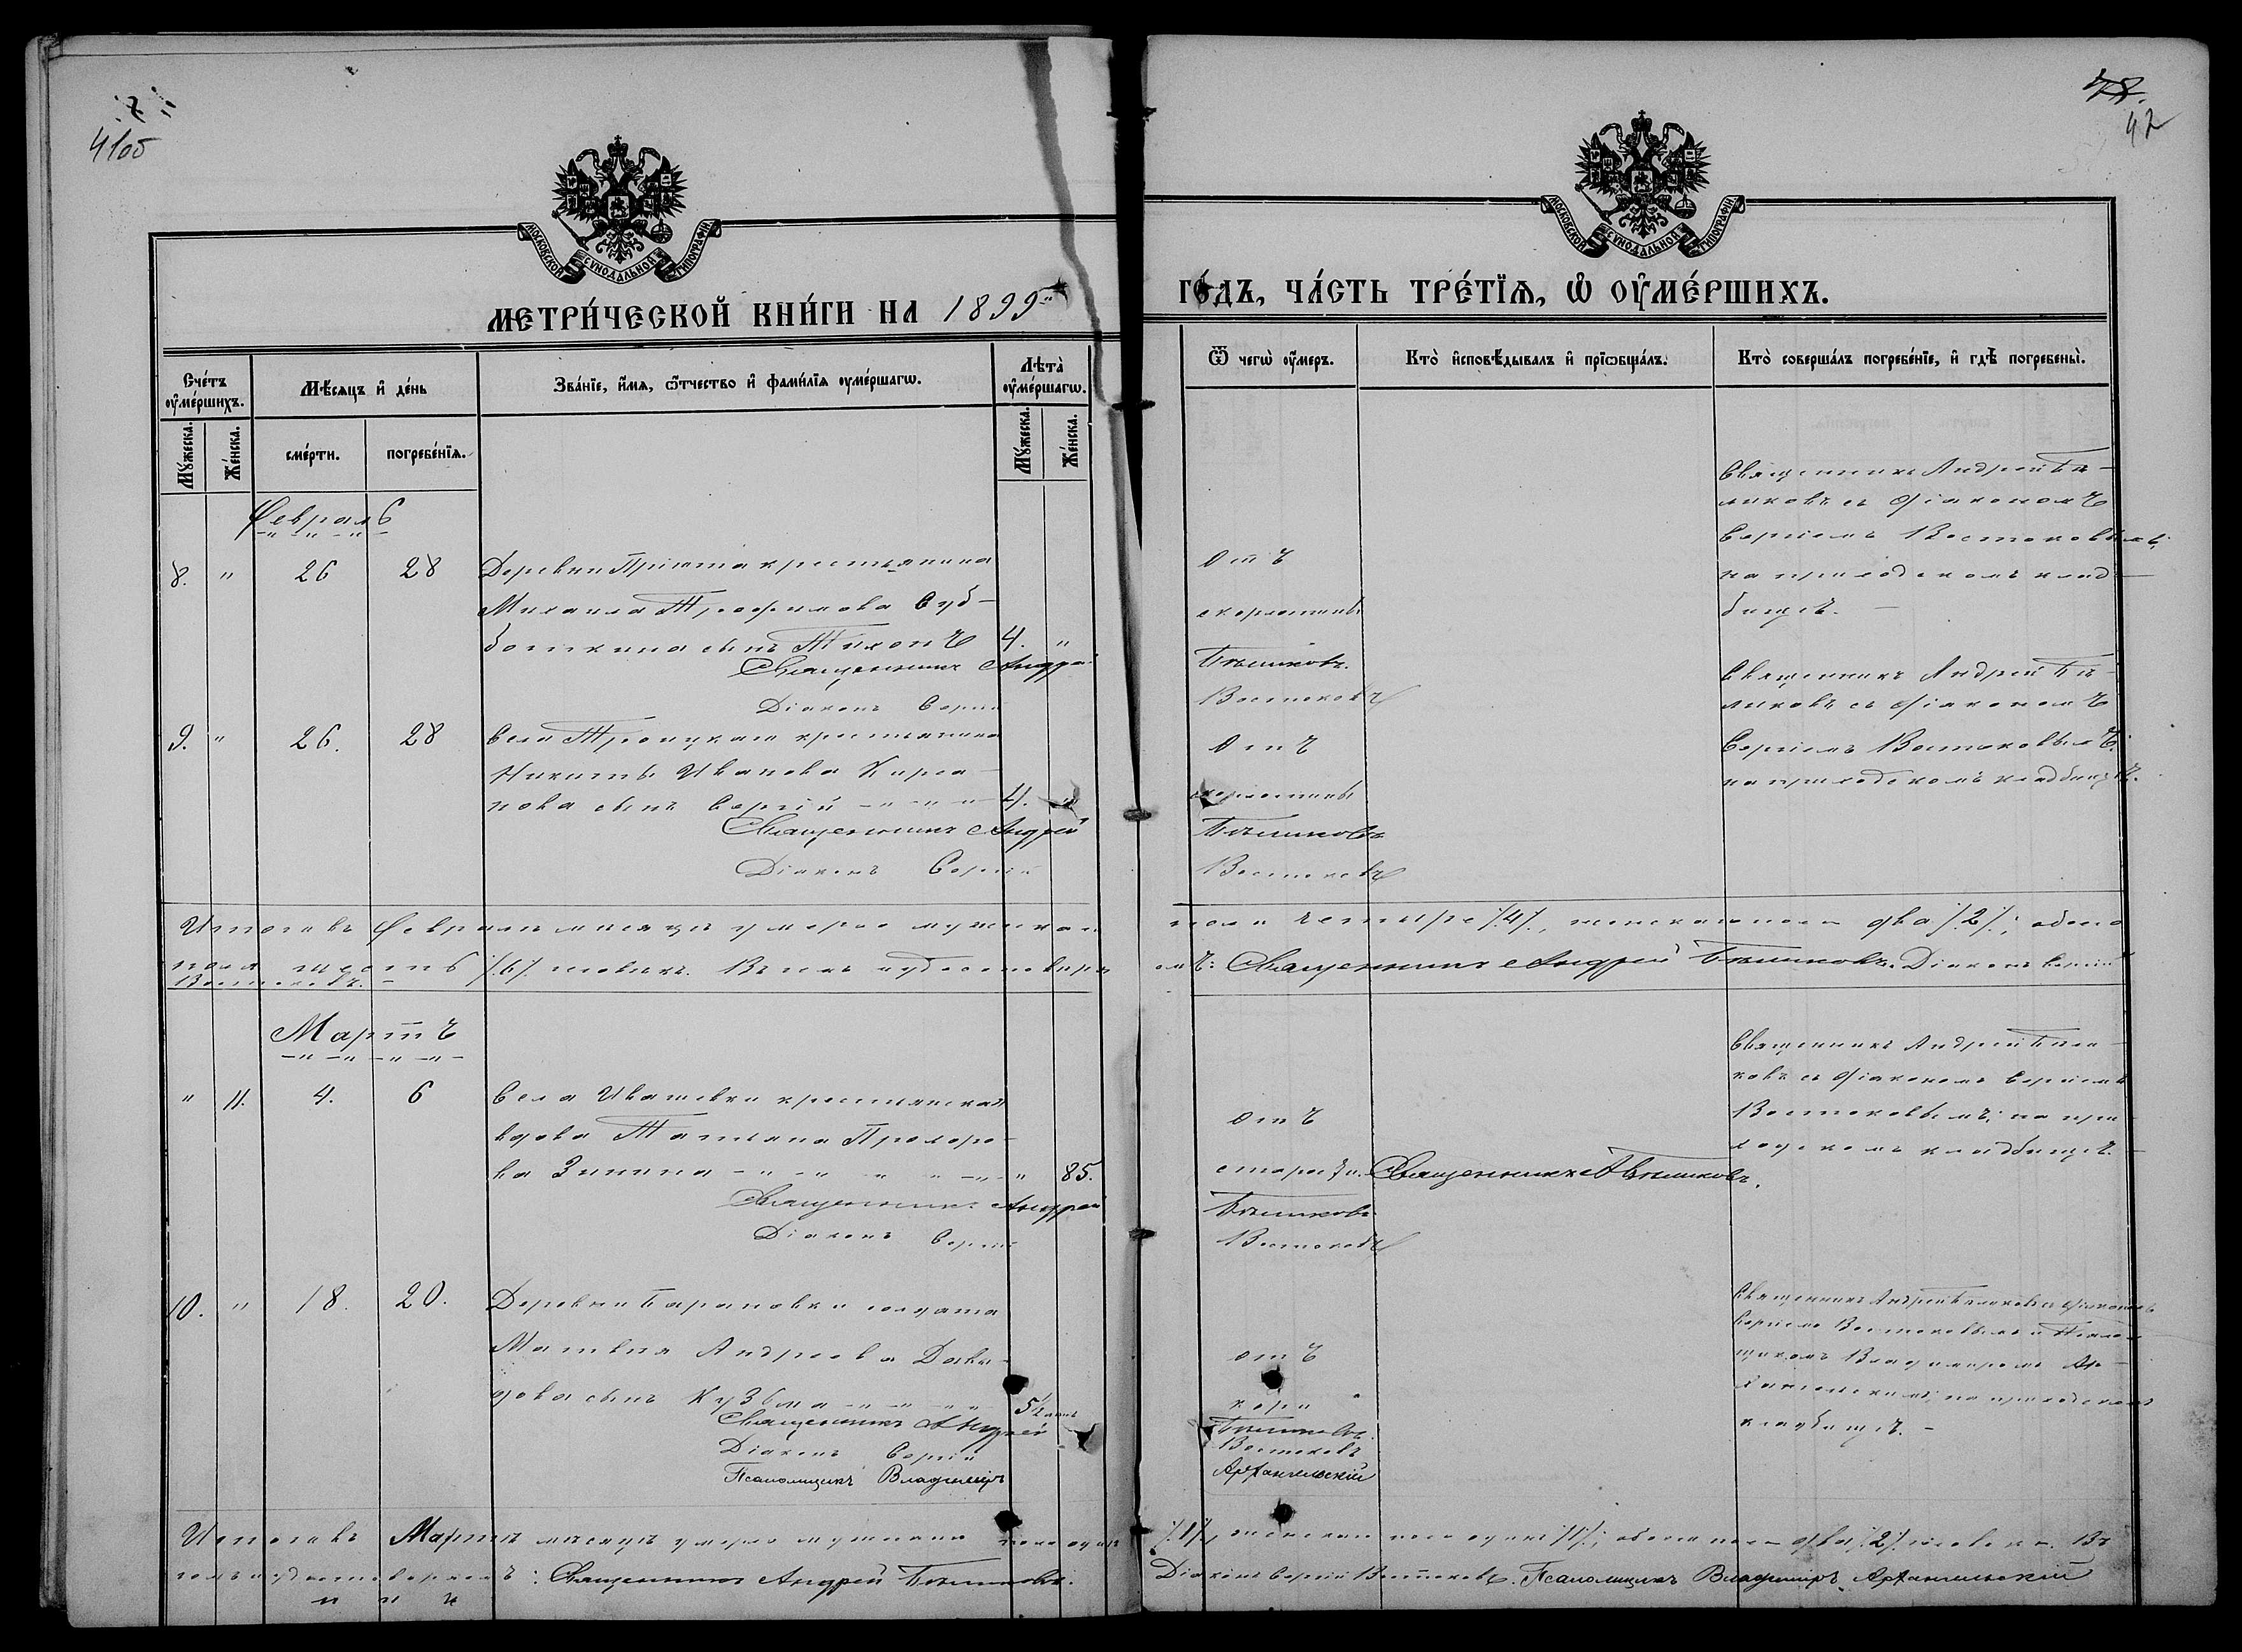 41об
78.
42
МОСКОВСКОЙ СУНОДАЛЬНОЙ ТИПОГРАФІИ
МОСКОВСКОЙ СУНОДАЛЬНОЙ ТИПОГРАФІИ
МЕТРИ́ЧЕСКОЙ КНИ́ГИ НА 1899
ГО́ДЪ, ЧА́СТЬ ТРЕ́ТЇѦ, Ѡ ОУ҆МЕ́РШИХЪ.
Сче́тъ оу҆ме́ршихъ.
Мѣ́сяцъ и҆ де́нь
Зва́нїе, и҆́мѧ, ѻ҆́тчество и҆ фами́лїѧ оуме́ршагѡ.
Лѣта̀ оу҆ме́ршагѡ.
Ѿ чегѡ̀ оу҆́меръ.
Кто̀ и҆сповѣ́дывалъ и҆ прїѡбща́лъ.
Кто̀ соверша́лъ погребе́нїе, и҆ гдѣ̀ погребены̀.
Му́жеска.
Же́нска.
сме́рти.
погребе́нїѧ.
Му́жеска.
Же́нска.
Февраль
8. " 26 28
Деревни Пріюта крестьянина
Михаила Трофимова Суб-
боткина сынъ Тихонъ 4. "
Священникъ Андрей
Діаконъ Сергій
отъ
скарлатины
Бѣликовъ.
Востоковъ
Священникъ Андрей Бѣ-
ликовъ съ діакономъ
Сергіемъ Востоковымъ;
на приходскомъ клад-
бищѣ.
9. " 26. 28
Села Троицкаго крестьянина
Никиты Иванова Кирса-
нова сынъ Сергій 4. "
Священникъ Андрей
Діаконъ Сергій
отъ
скарлатины
Бѣликовъ
Востоковъ
Священникъ Андрей Бѣ-
ликовъ съ діакономъ
Сергіемъ Востоковымъ;
на приходскомъ кладбищѣ.
Итого въ Февралѣ мѣсяцѣ умерло мужскаго пола четыре /4/, женскаго пола два /2/; обоего
пола шесть /6/ человѣкъ. Въ чемъ и удостовѣряемъ: Священникъ Андрей Бѣликовъ. Діаконъ Сергій
Востоковъ.
Мартъ
" 11. 4. 6
Села Ивашевки крестьянская
вдова Татьяна Прохоро-
ва Зинина " 85.
Священникъ Андрей
Діаконъ Сергій
отъ
старости.
Бѣликовъ
Востоковъ
Священникъ А Бѣликовъ.
Священникъ Андрей Бѣли-
ковъ съ діакономъ Сергіемъ
Востоковымъ; на при-
ходскомъ кладбищѣ.
10. " 18. 20.
Деревни Барановки солдата
Матвѣя Андреева Давы-
дова сынъ Кузьма 5½
Священникъ Андрей
Діаконъ Сергій
Псаломщикъ Владиміръ
отъ
кори
Бѣликовъ.
Востоковъ
Архангельскій
Священникъ Андрей Бѣликовъ съ діакономъ
Сергіемъ Востоковымъ и Псалом-
щикомъ Владиміромъ Ар-
хангельскимъ; на приходскомъ
кладбищѣ.
Итого въ Мартѣ мѣсяцѣ умерло мужскаго пола одинъ /1/, женскаго пола одна /1/; обоего пола два /2/ человѣка. Въ
чемъ и удостовѣряемъ: Священникъ Андрей Бѣликовъ. Діаконъ Сергій Востоковъ. Псаломщикъ Владиміръ Архангельскій